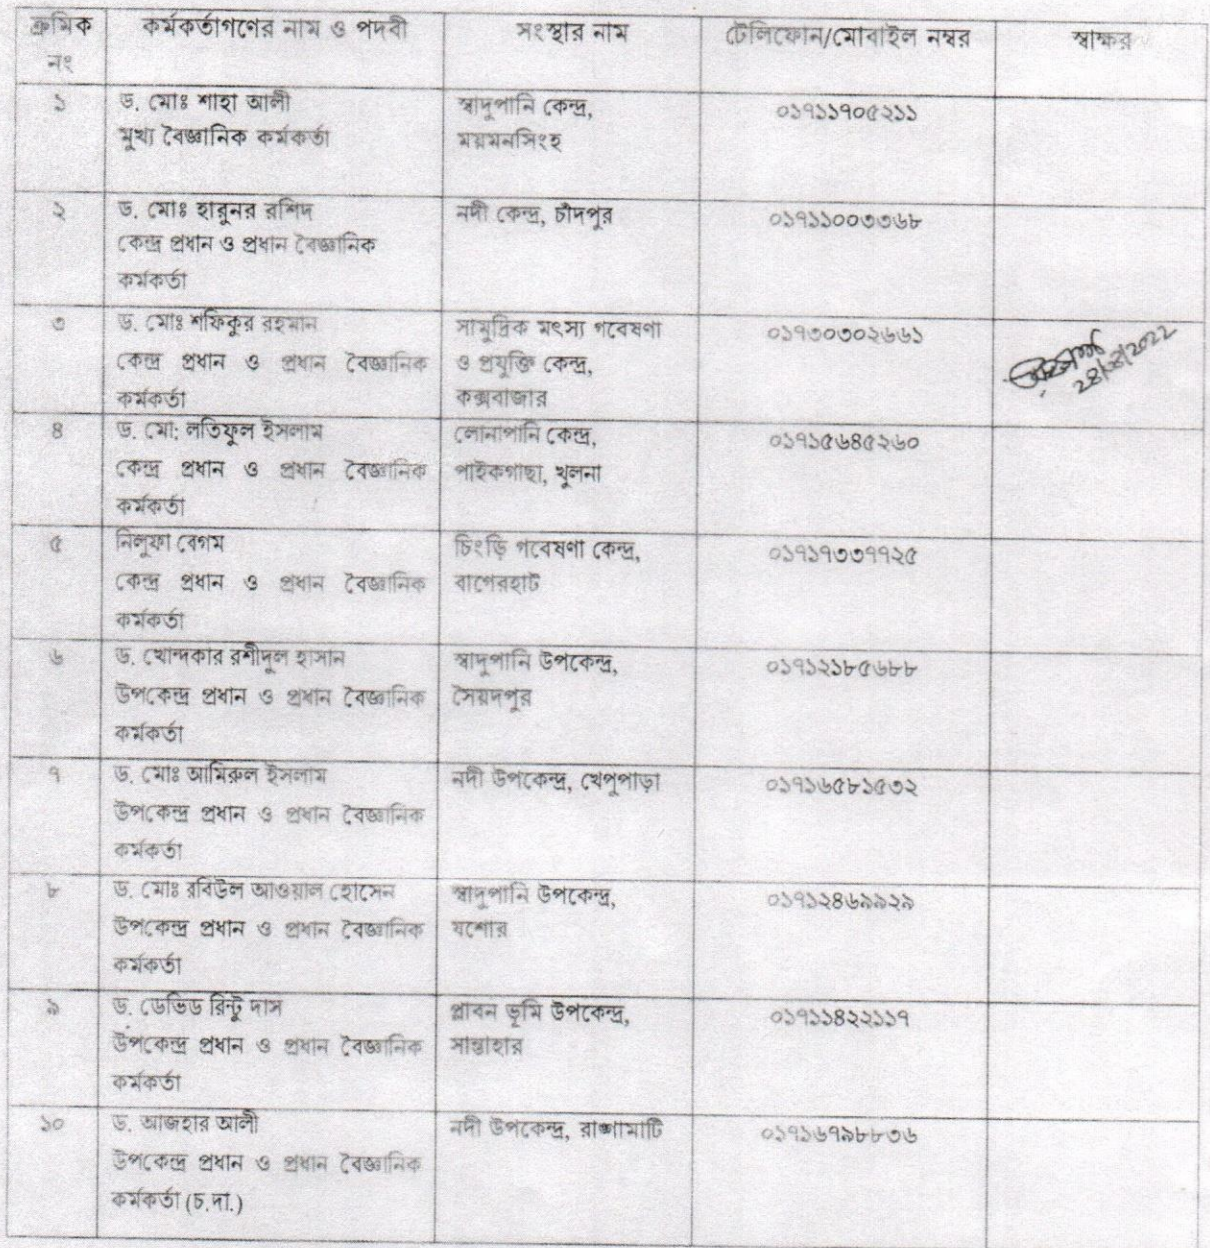 ক্রমিক নং	কর্মকর্তাগণের নাম ও পদবী	সংস্থার নাম	টেলিফোন/মোবাইল নম্বর	স্বাক্ষর
১
ড. মোঃ শাহা আলী
মুখ্য বৈজ্ঞানিক কর্মকর্তা
স্বাদুপানি কেন্দ্র,
ময়মনসিংহ
০১৭১১৭০৫২১১
২
ড. মোঃ হারুনর রশিদ
কেন্দ্র প্রধান ও প্রধান বৈজ্ঞানিক
কর্মকর্তা
নদী কেন্দ্র, চাঁদপুর
০১৭১১০০৩৩৬৮
৩
ড. মোঃ শফিকুর রহমান
কেন্দ্র প্রধান ও প্রধান বৈজ্ঞানিক
কর্মকর্তা
সামুদ্রিক মৎস্য গবেষণা
ও প্রযুক্তি কেন্দ্র,
কক্সবাজার
০১৭৩০৩০২৬৬১
৪
ড. মো: লতিফুল ইসলাম
কেন্দ্র প্রধান ও প্রধান বৈজ্ঞানিক
কর্মকর্তা
লোনাপানি কেন্দ্র,
পাইকগাছা, খুলনা
০১৭১৫৬৪৫২৬০
৫
নিলুফা বেগম
কেন্দ্র প্রধান ও প্রধান বৈজ্ঞানিক
কর্মকর্তা
চিংড়ি গবেষণা কেন্দ্র,
বাগেরহাট
০১৭১৭৩৩৭৭২৫
৬
ড. খোন্দকার রশীদুল হাসান
উপকেন্দ্র প্রধান ও প্রধান বৈজ্ঞানিক
কর্মকর্তা
স্বাদুপানি উপকেন্দ্র,
সৈয়দপুর
০১৭১২১৮৫৬৮৮
৭
ড. মোঃ আমিরুল ইসলাম
উপকেন্দ্র প্রধান ও প্রধান বৈজ্ঞানিক
কর্মকর্তা
নদী উপকেন্দ্র, খেপুপাড়া
০১৭১৬৫৮১৫৩২
৮
ড. মোঃ রবিউল আওয়াল হোসেন
উপকেন্দ্র প্রধান ও প্রধান বৈজ্ঞানিক
কর্মকর্তা
স্বাদুপানি উপকেন্দ্র,
যশোর
০১৭১২৪৬৯৯২৯
৯
ড. ডেভিড রিন্টু দাস
উপকেন্দ্র প্রধান ও প্রধান বৈজ্ঞানিক
কর্মকর্তা
প্লাবন ভূমি উপকেন্দ্র,
সান্তাহার
০১৭১১৪২২১১৭
১০
ড. আজহার আলী
উপকেন্দ্র প্রধান ও প্রধান বৈজ্ঞানিক
কর্মকর্তা (চ.দা.)
নদী উপকেন্দ্র, রাঙ্গামাটি
০১৭১৬৭৯৮৮৩৬